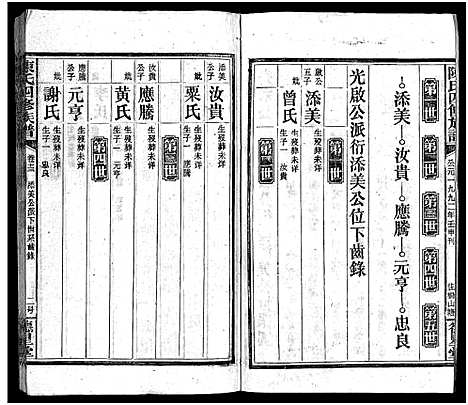 陳氏四修族譜
公元一九九二年壬申刊
德星堂
第一世
第二世
第三世
第四世
第五世
添美—汝貴—應騰—元亨—忠良
光啟公派衍添美公位下齒錄
啟公五子
添美
生歿葬未詳
妣
曾氏
生歿葬未詳
生子一 汝貴
第二世
添美公子
汝貴
生歿葬未詳
妣
栗氏
生歿葬未詳
生子一 應騰
第三世
汝貴公子
應騰
生歿葬未詳
妣
黄氏
生歿葬未詳
生子一 元亨
第四世
應騰公子
元亨
生歿葬未詳
妣
謝氏
生歿葬未詳
生子一 忠良
陳氏四修族譜
添美公派下齒錄
德星堂